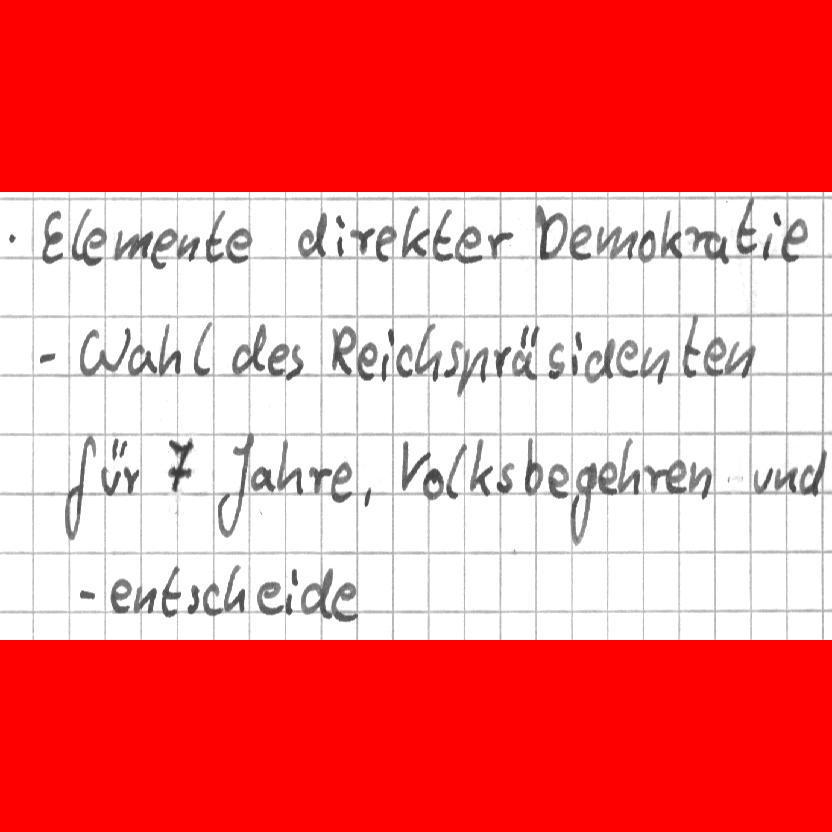 · Elemente direkter Demokratie
- Wahl des Reichspräsidenten
für 7 Jahre, Volksbegehren und
-entscheide